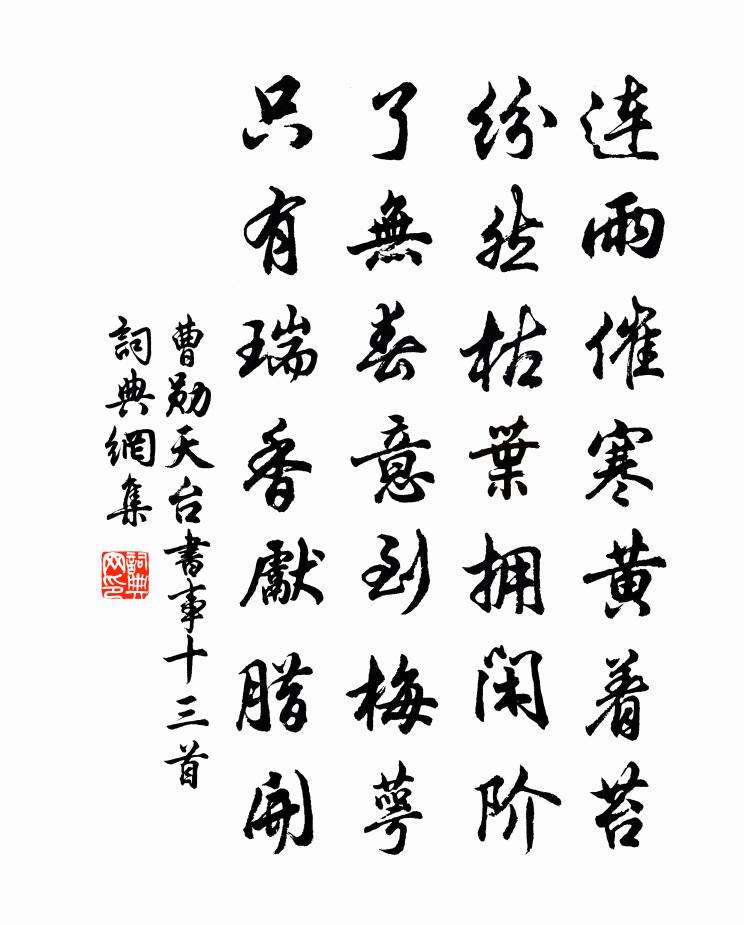 连雨催寒黄着苔
纷然枯葉拥闲阶
了無春意到梅萼
只有瑞香獻腊開
曹勋天台書事十三首
詞典網集
詞典網印